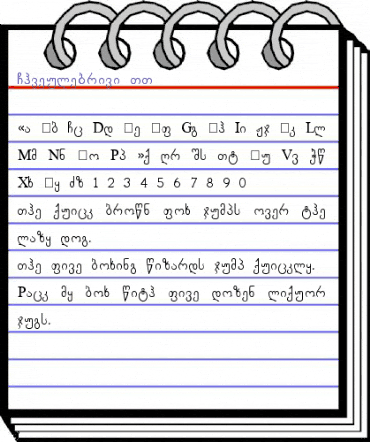 ჩჰვეულებრივი თთ
«ა □ბ ჩც Dდ □ე □ფ Gგ □ჰ Iი ჟჯ □კ Lლ
Mმ Nნ □ო Pპ »ქ ღრ შს თტ □უ Vვ ჭწ
Xხ □ყ ძზ 1 2 3 4 5 6 7 8 9 0
თჰე ქუიცკ ბროწნ ფოხ ჯუმპს ოვერ ტჰე
ლაზყ დოგ.
თჰე ფივე ბოხინგ წიზარდს ჯუმპ ქუიცკლყ.
Pაცკ მყ ბოხ წიტჰ ფივე დოზენ ლიქუორ
ჯუგს.